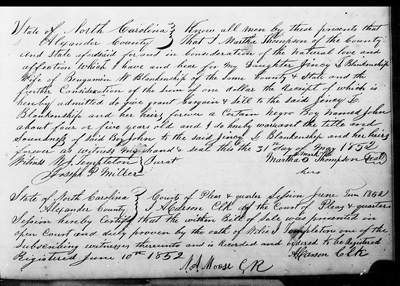 State of North Carolina } Know all men by these presents that
Alexander County } That I Martha Thompson of the County
and State aforesaid for and in Consideration of the Natural love and
affection which I have and bear for my Daughter Jincy L Blankenship
Wife of Benjamin W Blankenship of the Same County & State and the
further Consideration of the Sum of one dollar the Receipt of which is
hereby admitted do give grant bargain & Sell to the said Jincy L
Blankenship and her heirs forever a Certain Negro Boy Named John
about four or five year old and I do hereby warrant the title and
Soundness of Said Boy John to the said Jincy L Blankenship and her heirs
forever as witness my hand & seal this the 31st day of May 1852
Witness W J Templeton Jurat Martha Thompson (seal)
Joseph P Miller hers
mark
State of North Carolina } Court of Pleas & quarter Session June Term 1852
Alexander County } I A Carson Clk of the Court of Pleas & quarter
Session hereby Certify that the within Bill of Sale was presented in
open Court and duly proven by the oath of Templeton one of the
Subscribing witnesses thereunto and is Recorded and ordered to be Registered
Registered June 10th 1852 A Carson Clk
Moose C R